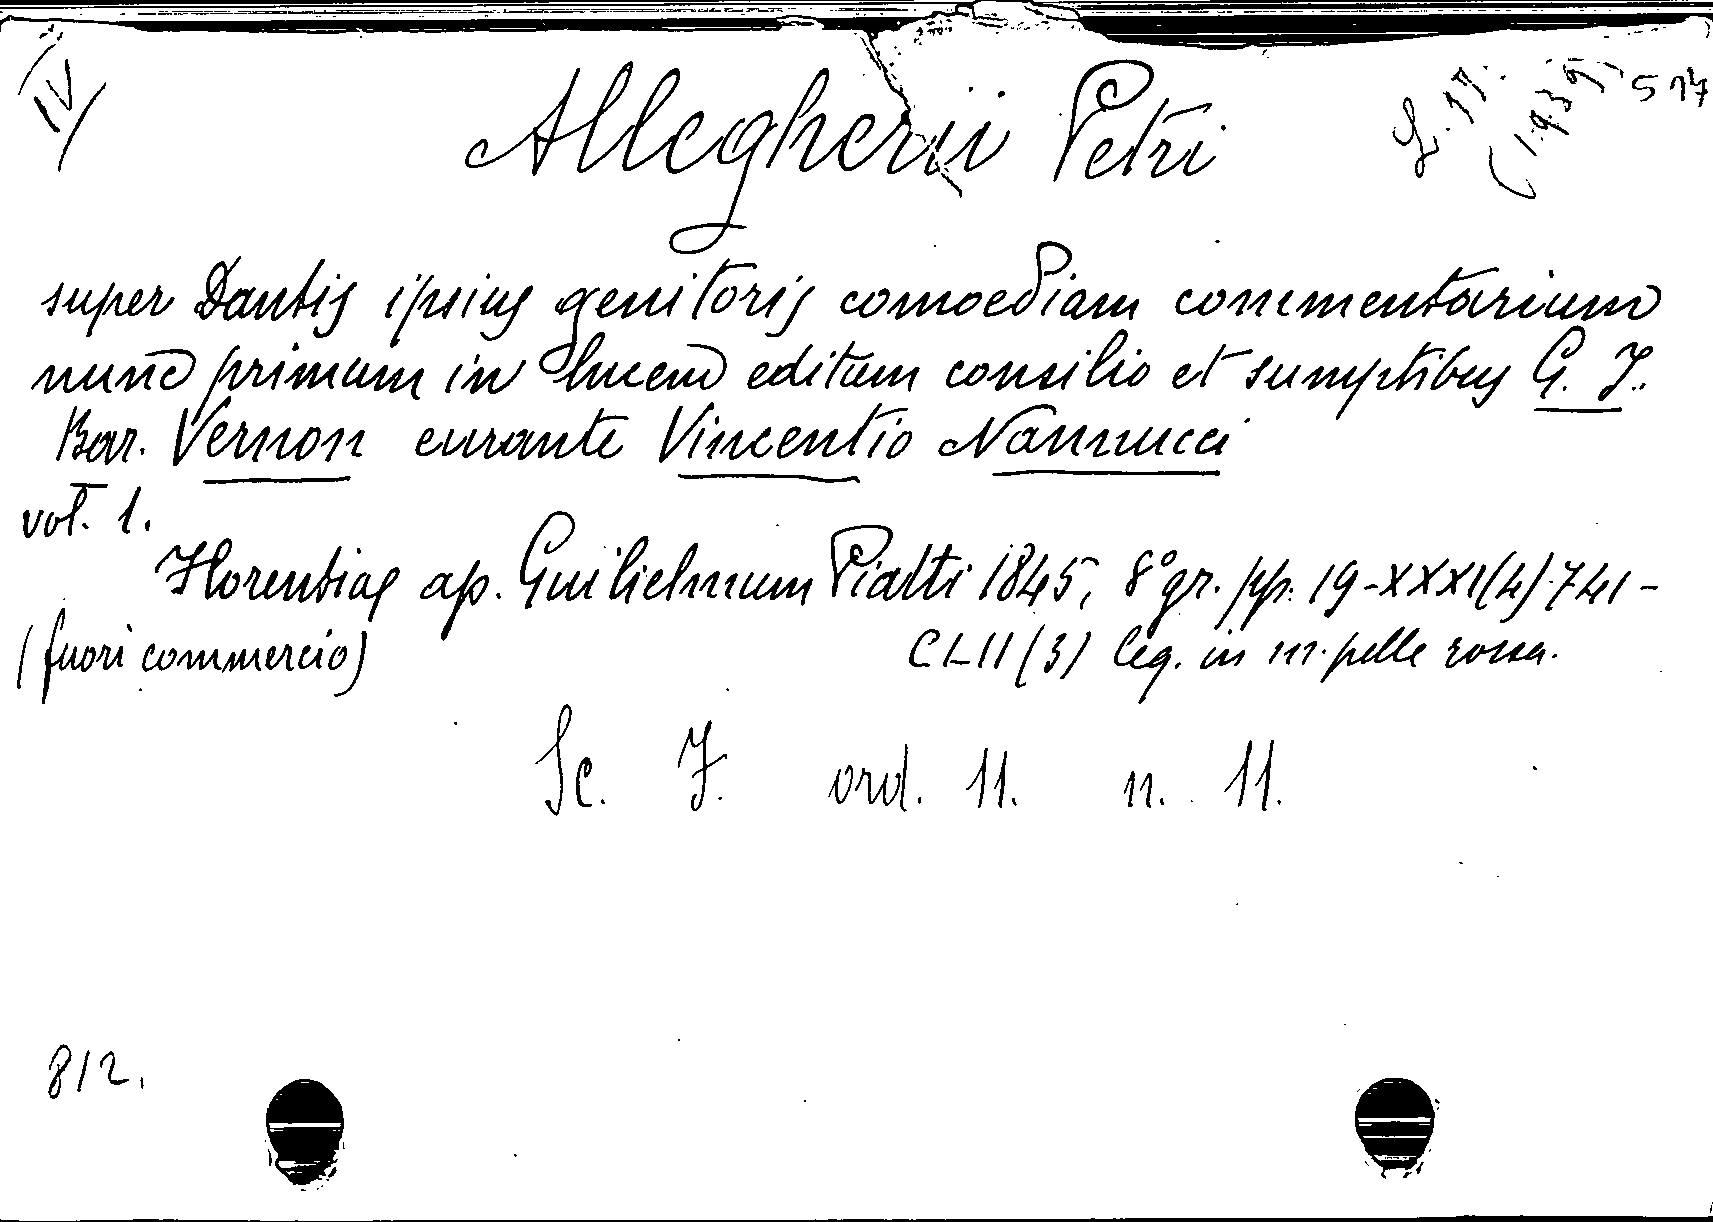 IV
Allegherii Petri
L. 17.
(1939)
517
super Dantis ipsius genitoris comoediam commentarium
nunc primum in lucem editum consilio et sumptibus G. J.
Bar. Vernon curante Vincentio Nannucci
vol. 1.
Florentiae ap. Guilielmum Piatti 1845, 8° gr. pp. 19-XXXI(4)-741-
(fuori commercio) CLII(3) leg. in m. pelle rossa.
Sc. J. ord. 11. n. 11.
812.